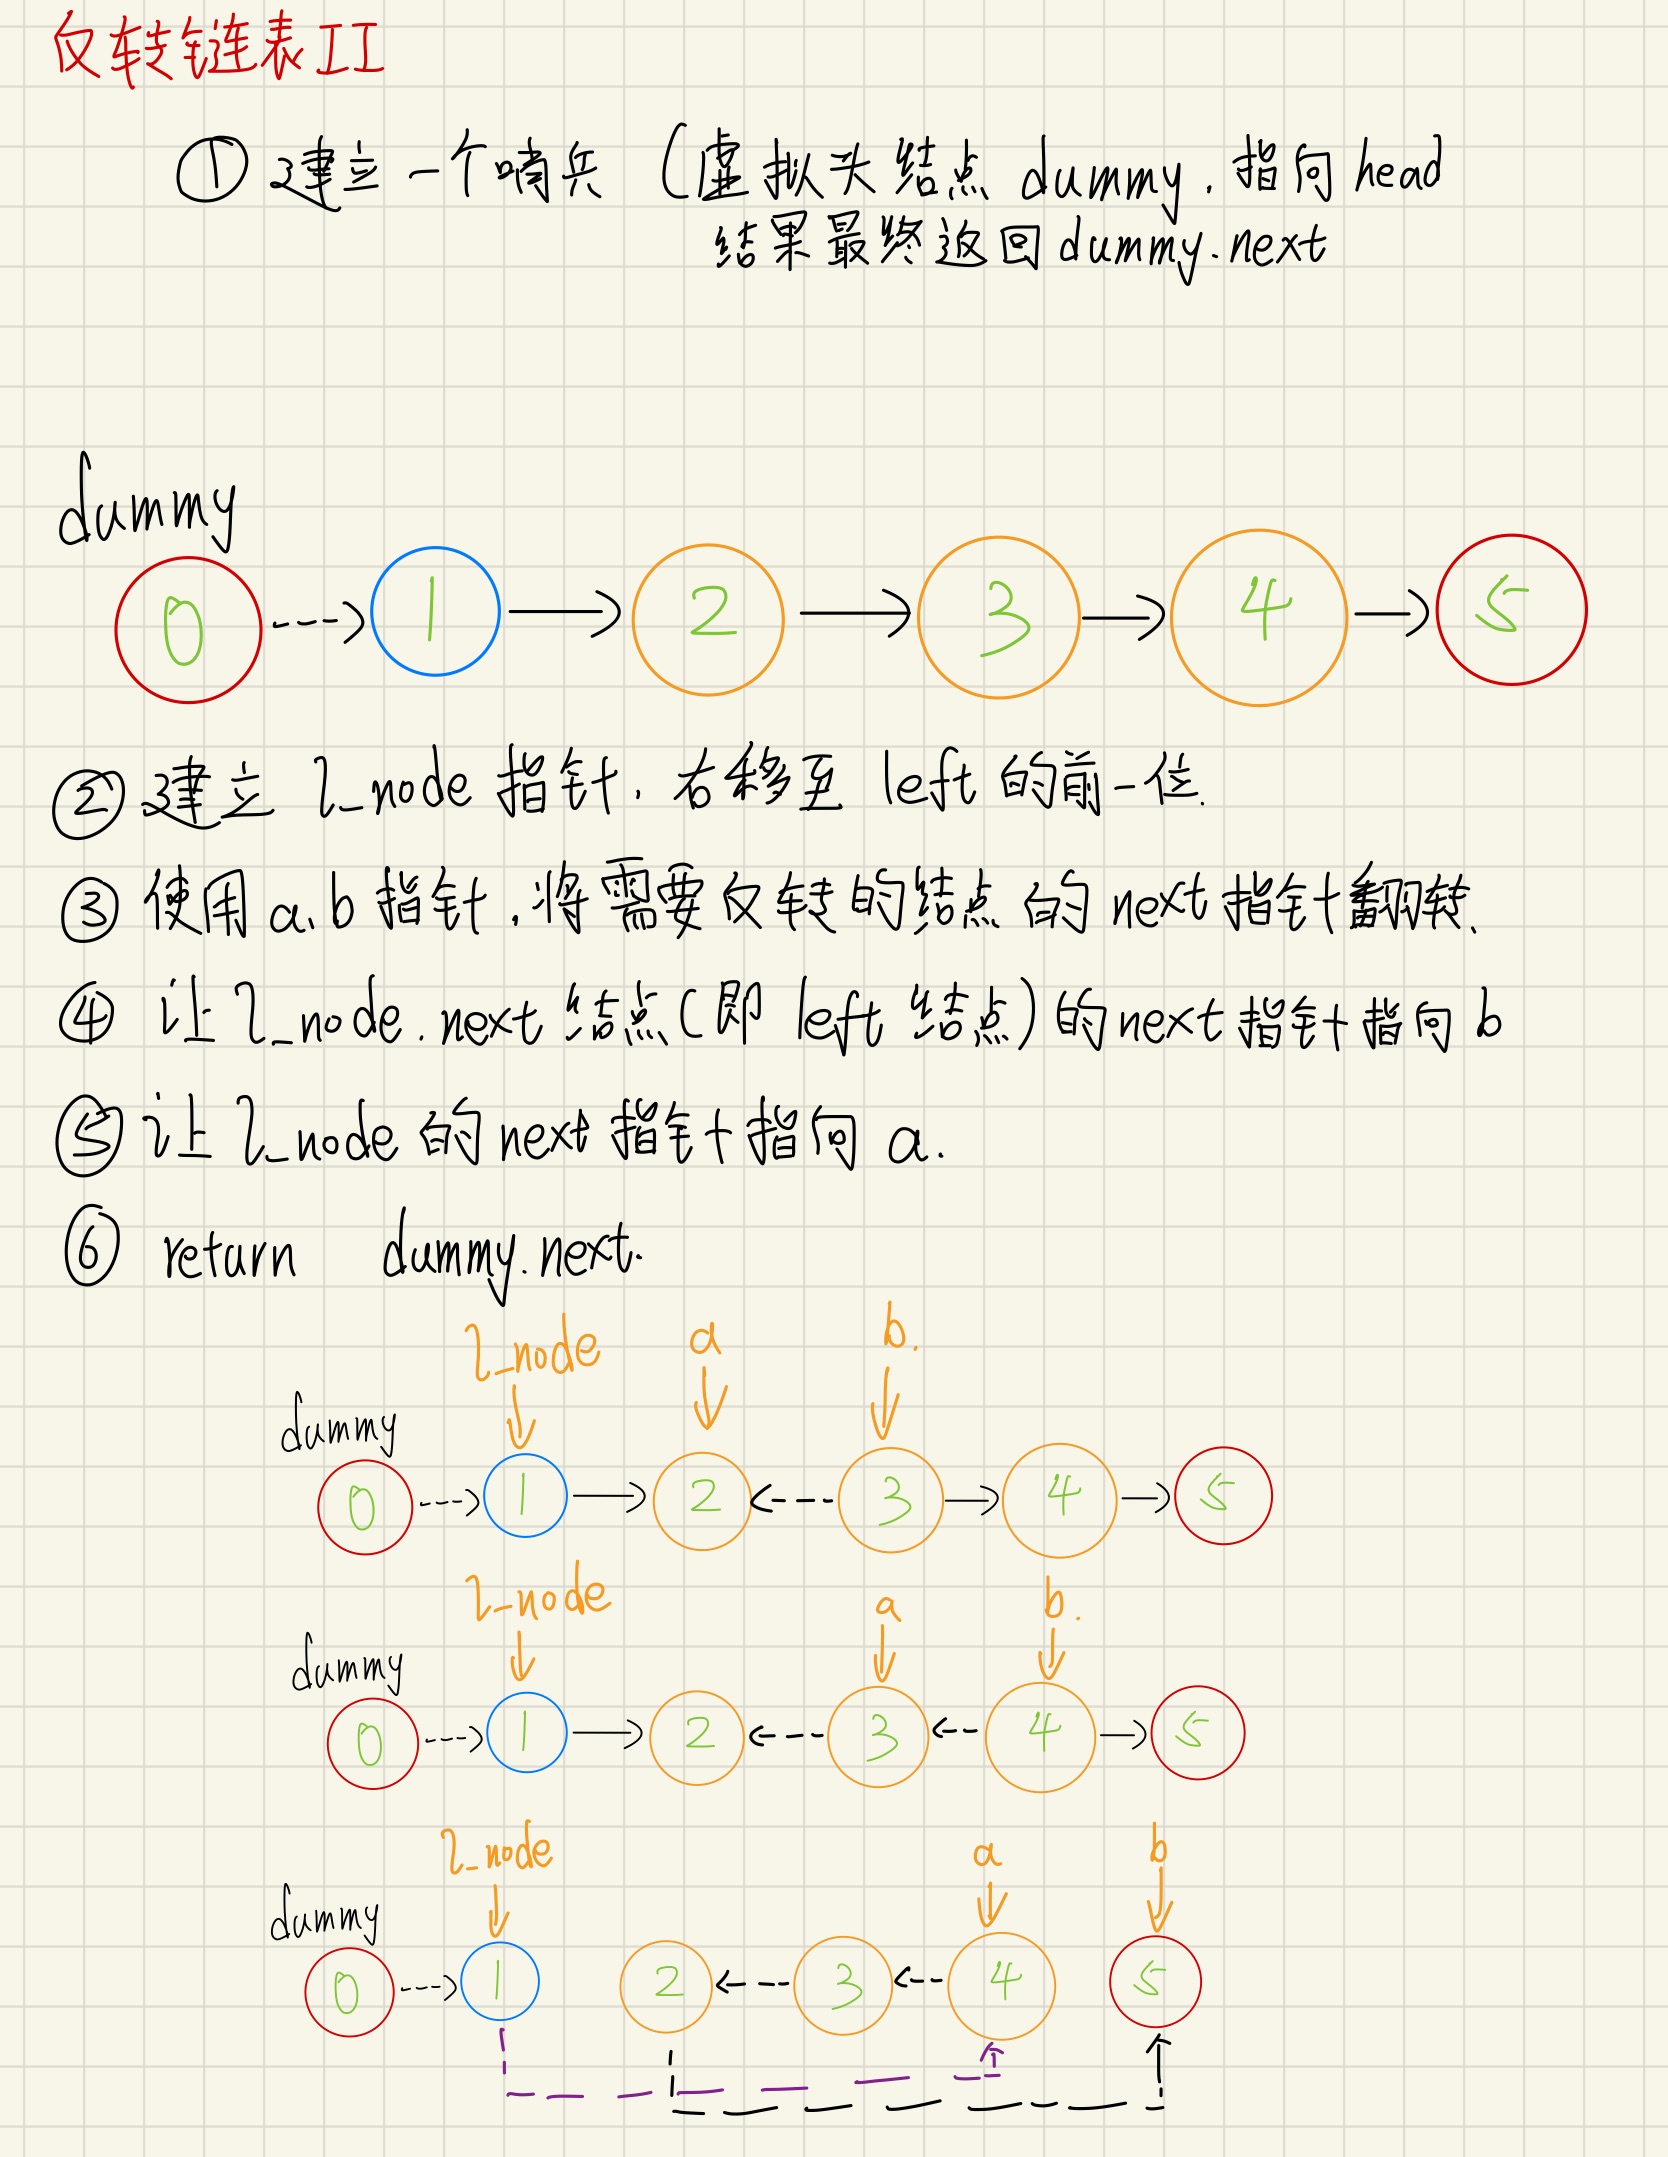 反转链表II
① 建立一个哨兵 (虚拟头结点 dummy, 指向head
结果最终返回dummy.next
dummy
0 1 2 3 4 5
② 建立 l_node 指针, 右移至 left 的前一位.
③ 使用 a、b 指针,将需要反转的结点的next指针翻转.
④ 让l_node.next结点(即 left 结点)的next指针指向 b
⑤ 让 l_node 的next指针指向 a.
⑥ return dummy.next.
l_node a b.
dummy
0 1 2 3 4 5
l_node a b.
dummy
0 1 2 3 4 5
l_node a b
dummy
0 1 2 3 4 5